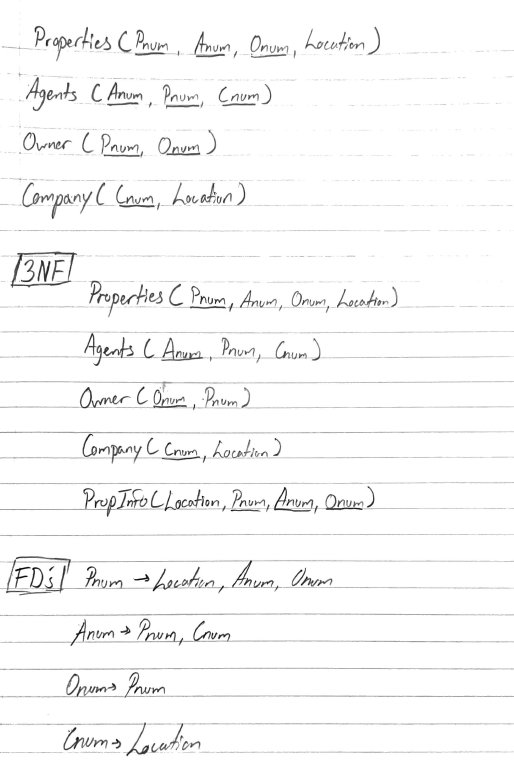 Properties ( Pnum, Anum, Onum, Location )
Agents ( Anum, Pnum, Cnum )
Owner ( Pnum, Onum )
Company ( Cnum, Location )
3NF
Properties ( Pnum, Anum, Onum, Location )
Agents ( Anum, Pnum, Cnum )
Owner ( Onum, Pnum )
Company ( Cnum, Location )
PropInfo ( Location, Pnum, Anum, Onum )
FD's Pnum → Location, Anum, Onum
Anum → Pnum, Cnum
Onum → Pnum
Cnum → Location